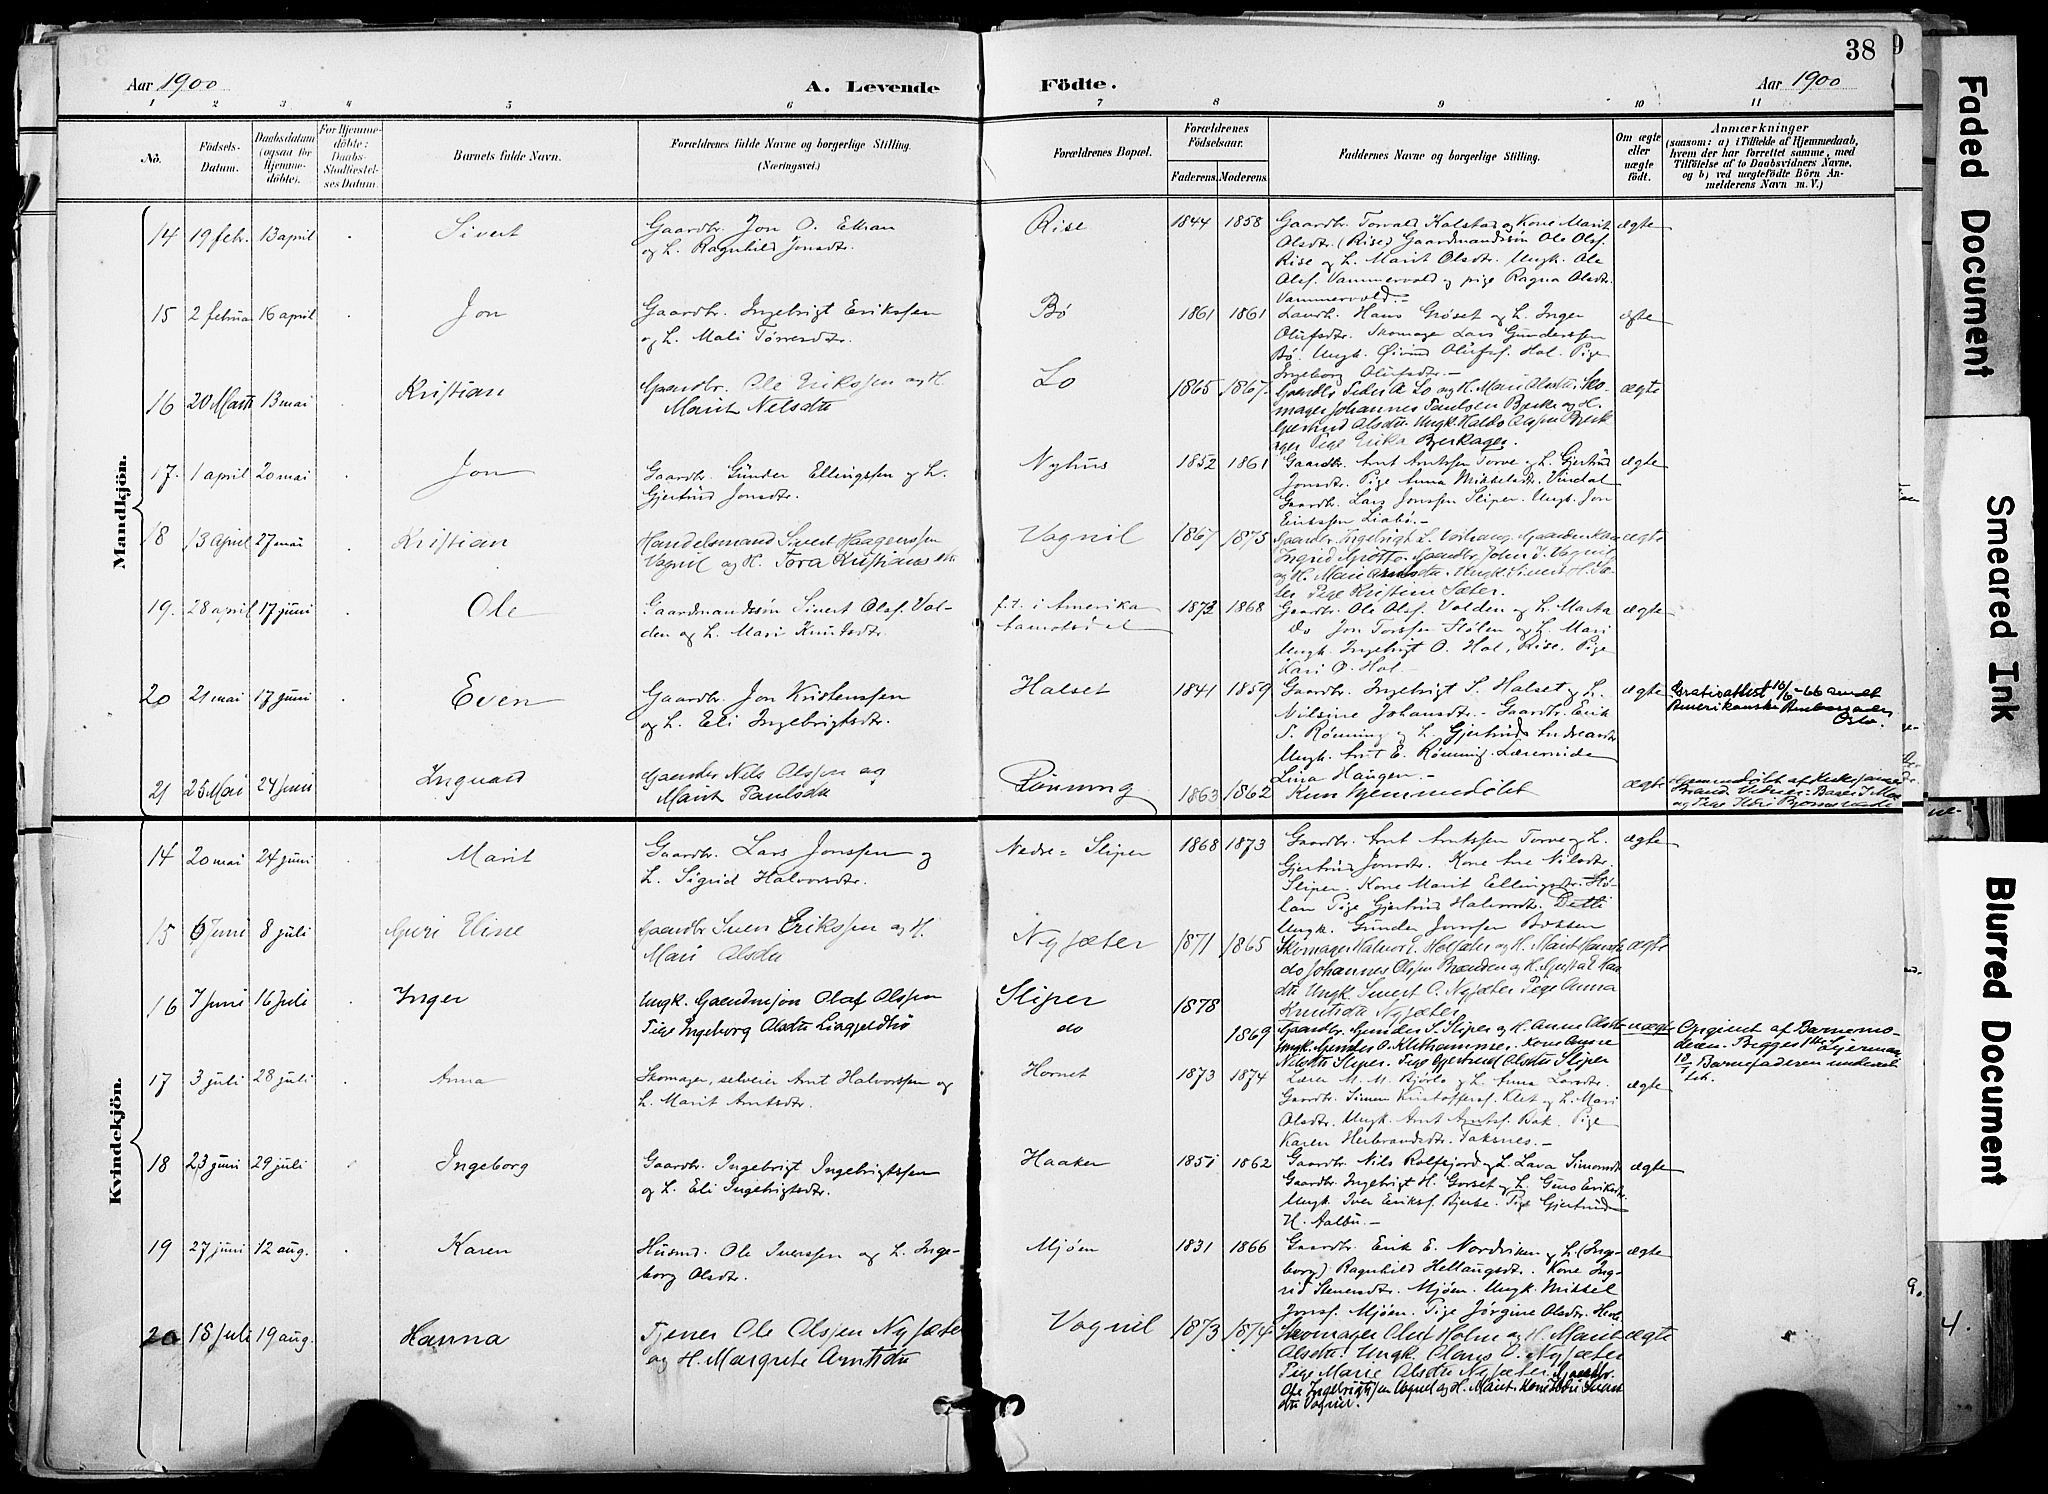 38
Aar 1900
A. Levende
Födte.
Aar 1900
1 2 3 4 5 6 7 8 9 10 11
No.
Födsels-
Datum.
Daabsdatum
(ogsaa for
Hjemme-
döbte).
For Hjemme-
döbte:
Daabs-
Stadfæstel-
ses Datum.
Barnets fulde Navn.
Forældrenes fulde Navne og borgerlige Stilling.
(Næringsvei.)
Forældrenes Bopæl.
Forældrenes
Födselsaar.
Faderens. Moderens.
Faddernes Navne og borgerlige Stilling.
Om ægte
eller
uægte
födt.
Anmærkninger
(saasom: a) i Tilfælde af Hjemmedaab,
hvem der har forrettet samme, med
Tilföielse af to Daabsvidners Navne,
og b) ved uægtefödte Börn An-
melderens Navn m. V.)
Mandkjön.
14 19 febr. 13 april Sivert Gaardbr. Jon O.
og h. Ragnhild Jonsdtr.
Rise 1844 1858 Gaardbr. Torvald Kalstad og Kone Marit ægte
Olsdtr. (Rise) Gaardmandssön Ole Olsf.
Rise og h. Marit Olsdtr. Ungk. Ole
Olsf. Vammervold og pige Ragna Olsdtr.
Vammervold.-
15 2 februar 16 april Jon Gaardbr. Ingebrigt Erikssen
og h. Mali Tørresdtr.
Bö 1861 1861 Landh. Hans Grøset og h. Inger ægte
Olufsdtr. Skomager Lars Gunderssen
Bö. Ungk. Øivind Olufsf. Hol. Pige
Ingeborg Olufsdtr.-
16 20 Marts 13 mai Kristian Gaardbr. Ole Erikssen og H.
Marit Nilsdtr
Lo 1865 1867 Gaardbr Peder A Lo og H. Mari Olsdtr. Sko- ægte
mager Johannes Paulsen Bjerke og H.
Gjertrud Olsdtr. Ungk. Haldo Olssen Bjerk-
ager Pige Erika Bjerkager.
17. 1 april 20 mai Jon Gaardbr. Gunder Ellingssen og h.
Gjertrud Jonsdtr.
Nyhus 1852 1861 Gaardbr. Arnt Arntssen Torve og h. Gjertrud ægte
Jonsdtr. Pige Anna Mikkelsdtr. Vindal
Gaardbr. Lars Jonssen Sliper. Ungk. Jon
Erikssen Liabö.-
18 13 april 27 mai Kristian Handelsmand Sivert Haagenssen
Vognil og H. Tora Kristiansdtr
Vognil 1867 1875 Gaardbr. Ingebrigt L. Gaardm.kone ægte
Ingrid Gaardbr. John Ö. Vognil
og H. Mari Arntsdtr. Ungk. Sivert H. Sæ-
ter Pige Kristine Sæter.
19. 28 april 17 juni Ole Gaardmandssön Sivert Olsf. Vol-
den og h. Mari Knutsdtr.
f.t. i Amerika
1872 1868 Gaardbr. Ole Olsf. Volden og h. Marta ægte
Do Jon Torssen Stölen og h. Mari
Ungk. Ingebrigt O. Hol, Rise. Pige
Kari O. Hol.-
20 21 mai 17 juni Even Gaardbr. Jon Kristenssen
og h. Eli Ingebrigtsdtr.
Halset 1841 1859 Gaardbr. Ingebrigt S. Halset og h. ægte
Nilsine Johansdtr. - Gaardbr. Erik
S. Rönning og h. Gjertrud
Ungk. Arnt E. Rönning. Lærerinde
Lina Haugen.-
Gratisattest 10/6-66 sendt
Amerikanske Ambassade,
Oslo.
21 25 Mai 24 Juni Ingvard Gaardbr Nils Olssen og
Marit Paulsdtr
Rönning 1863 1862 Kun hjemmedöbt ægte
Hjemmedöbt af
Kvindekjön.
14 20 mai 24 juni Marit Gaardbr. Lars Jonssen og
h. Sigrid Halvorsdtr.
Nedre = Sliper 1868 1873 Gaardbr. Arnt Arntssen Torve og h. ægte
Gjertrud Jonsdtr. Kone Ane Nilsdtr.
Sliper. Kone Marit Ellingsdtr. Stö-
lan Pige Gjertrud Halvorsdtr. Detli
Ungk. Gunder Jonssen
15 6 Juni 8 juli Guri Eline Gaardbr Sven Erikssen og H.
Mari Olsdtr
Nysæter 1871 1865 Skomager Halvor E. Holsæter og H. Marit ægte
do Johannes Olssen Brænden og H.
Ungk. Sivert O. Nysæter Pige Anna
Knutsdtr Nysæter
16 7 Juni 16 juli Inger Ungk. Gaardmsøn Olaf Olssen
Pige Ingeborg Olsdtr Liagjeldbö
Sliper 1878
do 1869 Gaardbr. Gunder S. Sliper og H. Anne Olsdtr uægte
Ungk. Gunder O. Klethammer. Kone Anne
Nilsdtr Sliper. Pige Gjertrud Olsdtr Sliper
Opgivet af Barnemo-
deren. Begges 1ste Leierm.
Barnefaderen underret-
tet.
17 3 juli 28 juli Anna Skomager, selveier Arnt Halvorssen og
h. Marit Arntsdtr.
Hornet 1873 1874 Lærer M. M. Björlo og h. Anna Larsdtr. ægte
Gaardbr. Simen Kristoffersf. Klet og h. Mari
Olsdtr. Ungk. Arnt Arntsf. Bak. Pige
Karen Herbrandsdtr. Taksnes.-
18 23 juni 29 juli Ingeborg Gaardbr. Ingebrigt Ingebrigtssen
og h. Eli Ingebrigtsdtr.
Haaker 1851 1862 Gaardbr. Nils Rolfsjord og h. Lava Simonsdtr ægte
Gaardbr. Ingebrigt H. Gorset og h. Guro Eriksdtr.
Ungk. Iver Eriksf. Bjerke. Pige Gjertrud
H. Aalbu.-
19 27 juni 12 aug. Karen Husmd. Ole Iverssen og h. Inge-
borg Olsdtr.
Mjöen 1831 1866 Gaardbr. Erik E. Nordviken og h. (Inge- ægte
borg) Ragnhild Hellaugsdtr. Kone Ing-
rid Stenersdtr. Mjöen. Ungk. Mikkel
Jonsf. Mjöen. Pige Jörgine Olsdtr.
20 15 Juli 19 aug. Hanna Tjener Ole Olssen Nysæter
og H. Margrete Arntsdtr
Vognil 1873 1874 Skomager Oluf Holm og H. Marit ægte
Olsdtr. Ungk. Claus O. Nysæter
Pige Marie Olsdtr Nysæter. Gaardbr.
Ole Ingebrigtssen Vognil og H. Marit. Kone
Vognil.
Faded Document
Smeared Ink
Blurred Document